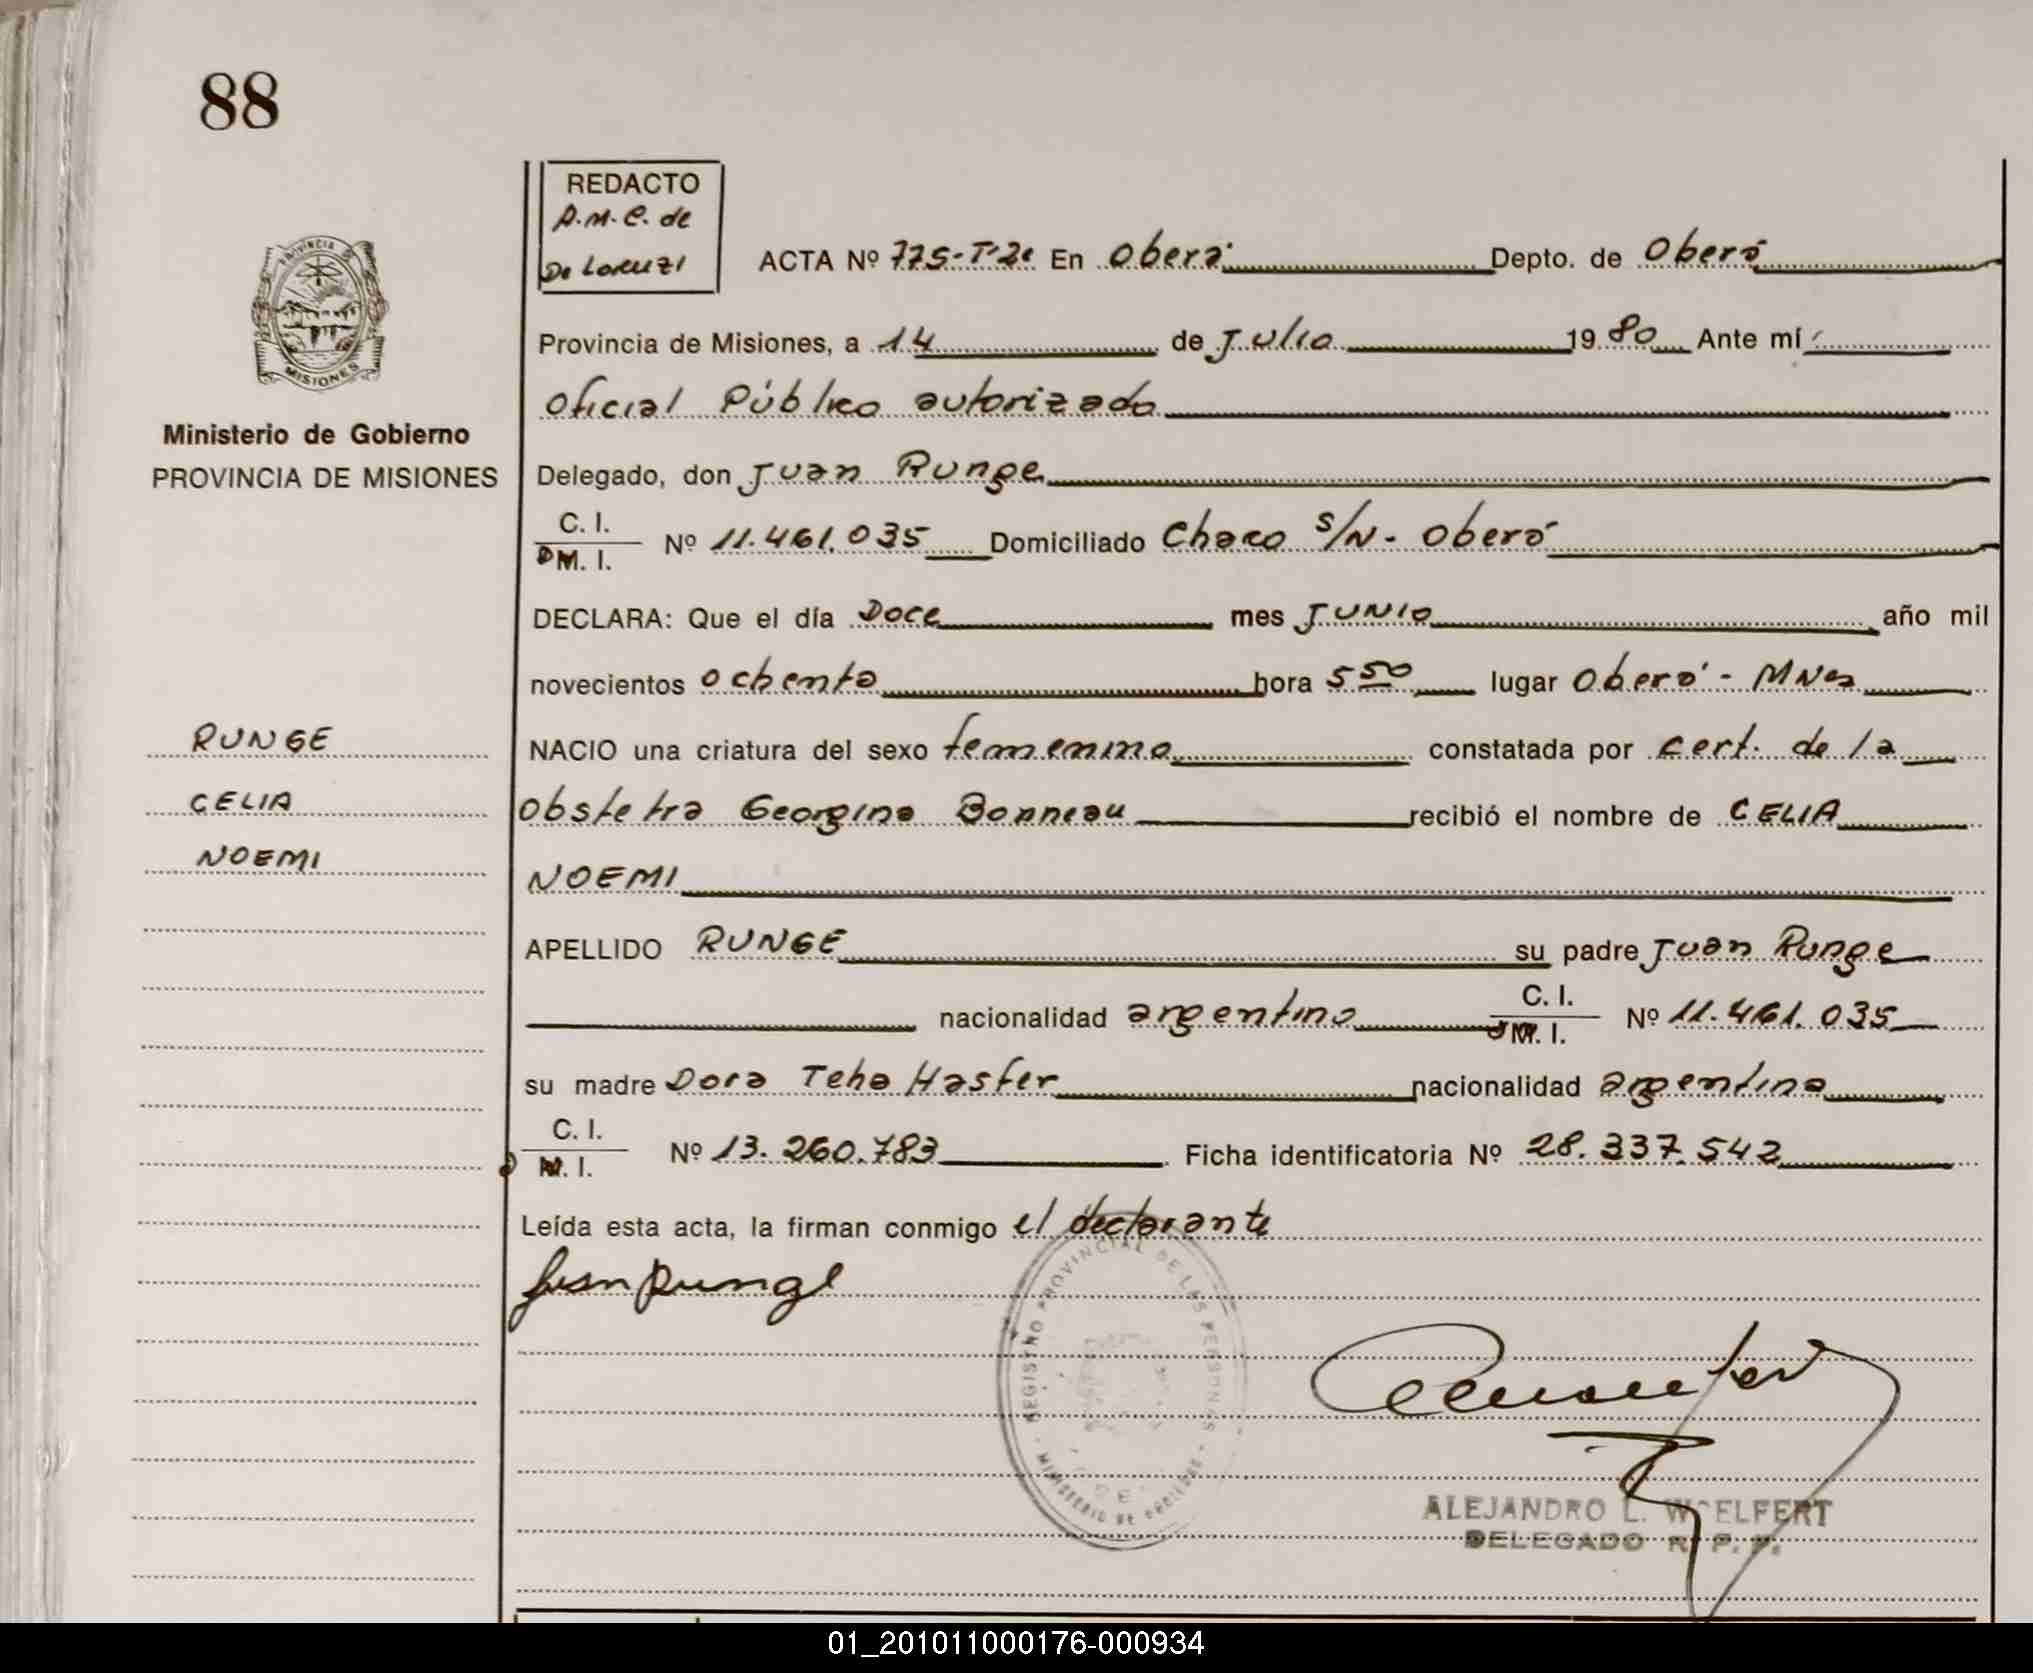 88
PROVINCIA
MISIONES
Ministerio de Gobierno
PROVINCIA DE MISIONES
RUNGE
CELIA
NOEMI
REDACTO
A.M.C. de
De Lorenzi
ACTA Nº 775-Tº2º En Oberá Depto. de Oberá
Provincia de Misiones, a 14 de Julio 1980 Ante mí
Oficial Público autorizado
Delegado, don Juan Runge
C. I.
DM. I. Nº 11.461.035 Domiciliado Chaco s/N - Oberá
DECLARA: Que el día Doce mes JUNIO año mil
novecientos ochenta hora 5 50 lugar Oberá - MNes
NACIO una criatura del sexo femenino constatada por cert. de la
Obstetra Georgina Bonneau recibió el nombre de CELIA
NOEMI
APELLIDO RUNGE su padre Juan Runge
nacionalidad argentino C. I. Nº 11.461.035
M. I.
su madre Dora Teha Hasfer nacionalidad argentina
C. I.
M. I. Nº 13.260.783 Ficha identificatoria Nº 28.337.542
Leída esta acta, la firman conmigo el declarante
Juan Runge
REGISTRO PROVINCIAL DE LAS PERSONAS - MINISTERIO DE GOBIERNO -
ALEJANDRO L. WOELFERT
DELEGADO R. P. P.
01_201011000176-000934